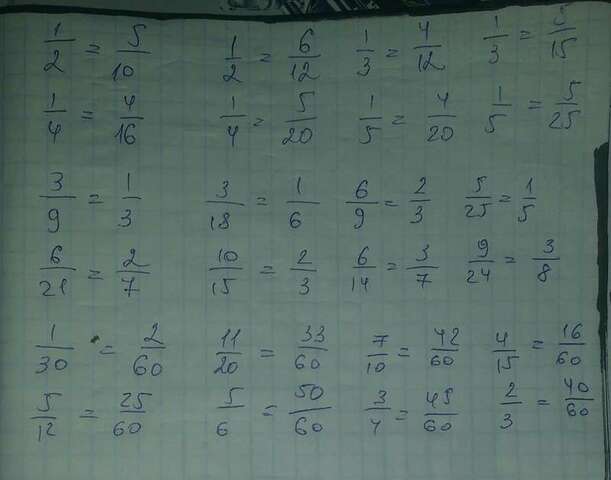 1/2 = 5/10 1/2 = 6/12 1/3 = 4/12 1/3 = 5/15
1/4 = 4/16 1/4 = 5/20 1/5 = 4/20 1/5 = 5/25
3/9 = 1/3 3/18 = 1/6 6/9 = 2/3 5/25 = 1/5
6/21 = 2/7 10/15 = 2/3 6/14 = 3/7 9/24 = 3/8
1/30 = 2/60 11/20 = 33/60 7/10 = 42/60 4/15 = 16/60
5/12 = 25/60 5/6 = 50/60 3/4 = 45/60 2/3 = 40/60